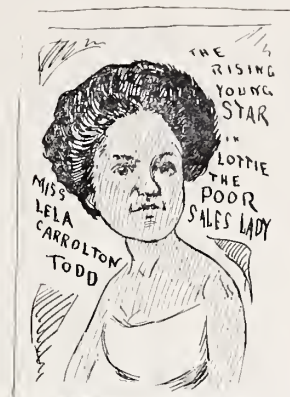 THE
RISING
YOUNG
STAR
IN
LOTTIE
THE
POOR
SALES LADY
MISS
LELA
CARROLTON
TODD